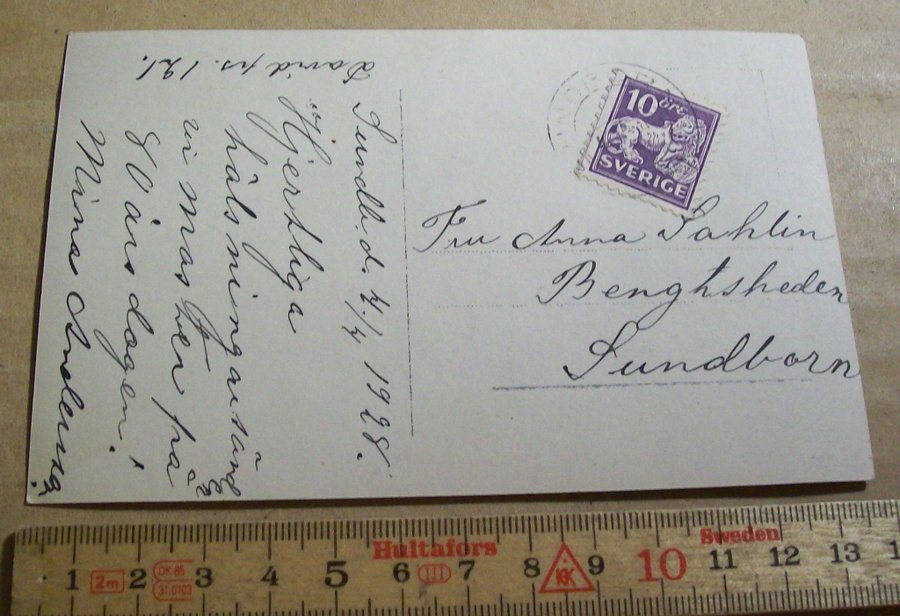 David ps. 121.
Sundb. d. 4/4 1928.
Hjertliga
hälsningar sänd
vi mor på
80 års dagen!
Mina
10 öre
SVERIGE
Fru Anna Sahlin
Bengtsheden
Sundborn
Hultafors
Sweden
1 2m 2 DK 85 31.0103 3 4 5 6 III 7 8 KK 9 10 11 12 13